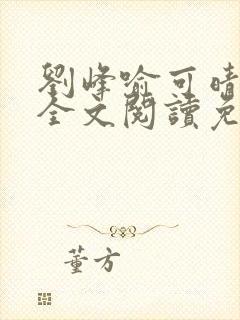 劉峰喻可晴
全文閱讀免
董方